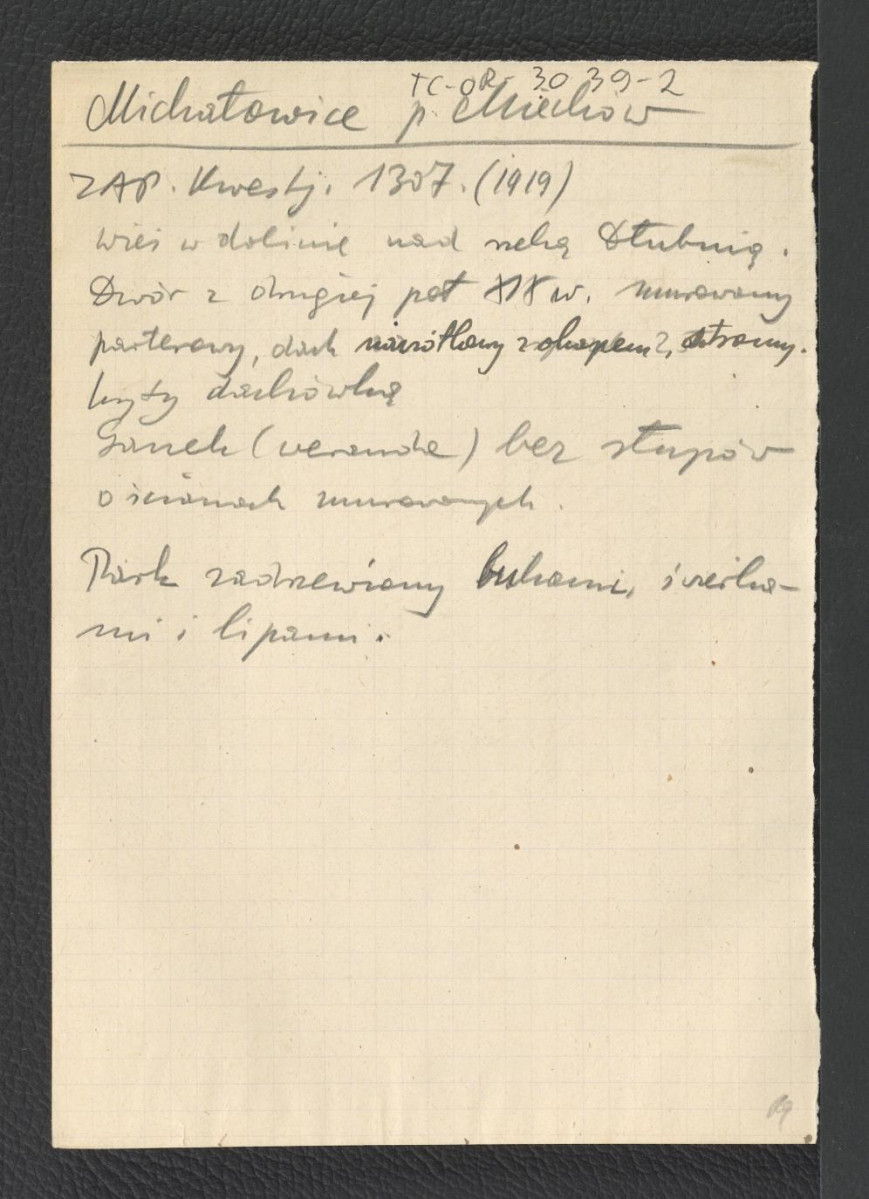 TC-OR 3039-2
Michałowice p. Miechów
ZAP. Kwestj. 1307. (1919)
Wieś w dolinie nad rzeką Dłubnią.
Dwór z drugiej poł XIX w. murowany
parterowy, dach z okapem, stromy.
kryty dachówką
Ganek (veranda) bez słupów
o ścianach murowanych.
Park zadrzewiony bukami, świerka-
mi i lipami.